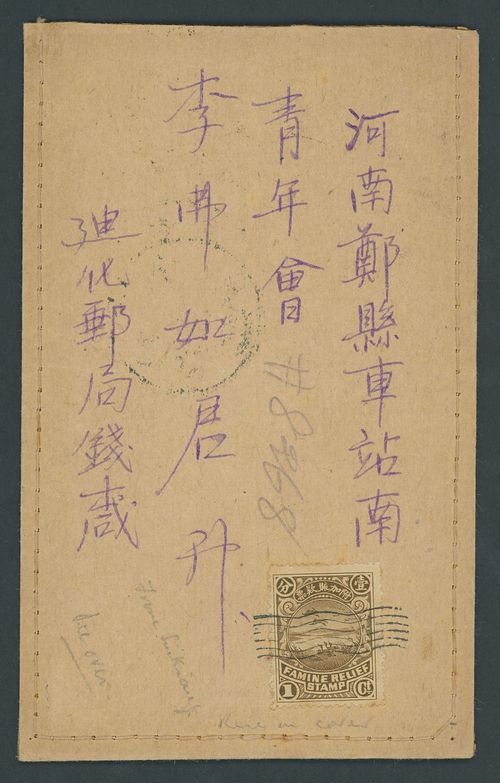 河南鄭縣車站南
青年會
李弗如君升
廸化郵局錢
分 壹
附加賑款票
FAMINE RELIEF
STAMP
1 Ct
From Sinkiang
Rare on cover